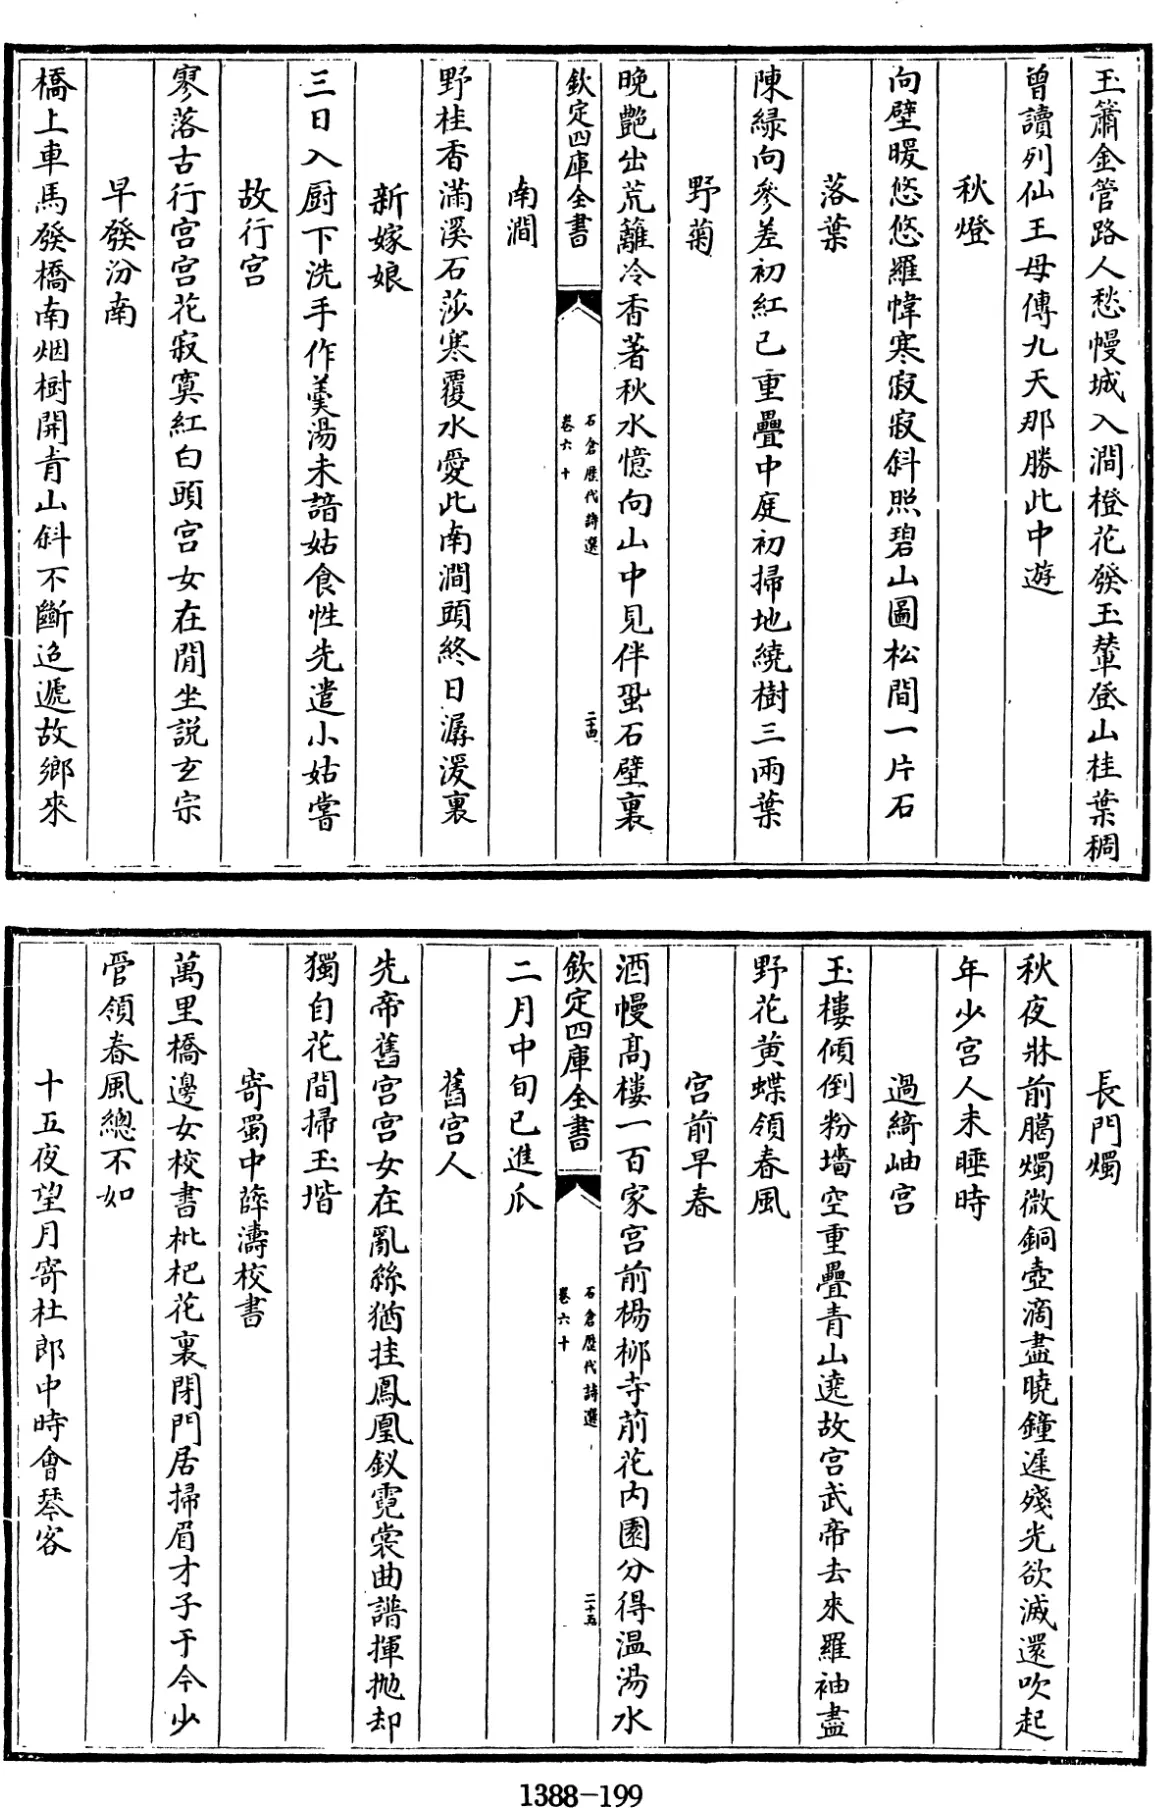 玉簫金管路人愁幔城入澗橙花發玉輦登山桂葉稠
曾讀列仙王母傳九天那勝此中遊
秋燈
向壁暖悠悠羅幃寒寂寂斜照碧山圖松間一片石
落葉
陳緑向參差初紅已重疊中庭初掃地繞樹三兩葉
野菊
晚艷出荒籬冷香著秋水憶向山中見伴蛩石壁裏
欽定四庫全書
石倉歷代詩選
卷六十
二十四
南澗
野桂香滿溪石莎寒覆水愛此南澗頭終日潺湲裏
新嫁娘
三日入厨下洗手作羹湯未諳姑食性先遣小姑嘗
故行宫
寥落古行宫宫花寂寞紅白頭宫女在閒坐説玄宗
早發汾南
橋上車馬發橋南烟樹開青山斜不斷迢遞故鄉來
長門燭
秋夜牀前臈燭微銅壺滴盡曉鐘遲殘光欲滅還吹起
年少宫人未睡時
過綺岫宫
玉樓傾倒粉墻空重疊青山遶故宫武帝去來羅袖盡
野花黄蝶領春風
宫前早春
酒幔高樓一百家宫前楊栁寺前花内園分得温湯水
欽定四庫全書
石倉歷代詩選
卷六十
二十五
二月中旬已進瓜
舊宫人
先帝舊宫宫女在亂絲猶挂鳳凰釵霓裳曲譜揮抛却
獨自花間掃玉堦
寄蜀中薛濤校書
萬里橋邊女校書枇杷花裏閉門居掃眉才子于今少
管領春風總不如
十五夜望月寄杜郎中時會琴客
1388-199